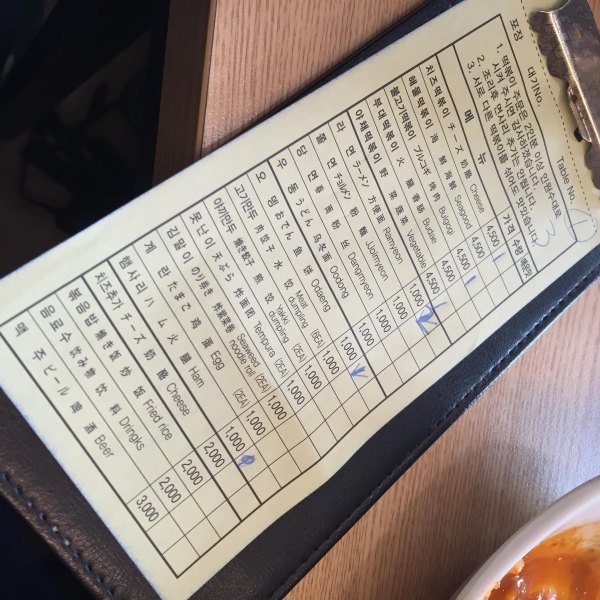 포장 대기No. Table No.
1. 떡볶이 주문은 2인분 이상 인원수대로
시켜 주시면 감사하겠습니다.
2. 조리후 면사리 추가는 안됩니다.
3. 서로 다른 떡볶이를 섞어도 맛있습니다. 3
메 뉴 가격 수량
치즈떡볶이 チーズ 奶酪 Cheese 4,500
해물떡볶이 海鮮 海鲜 Seagood 4,500
불고기떡볶이 プルコギ 烤肉 Bulgogi 4,500
부대떡볶이 火腿 香肠 Budae 4,500
야채떡볶이 野菜 蔬菜 Vegetable 4,500
라 면 ラーメン 方便面 Ramyeon 1,000
쫄 면 チョルメン 粉麵 Jjolmyeon 1,000
당 면 春雨 粉丝 Dangmyeon 1,000
우 동 うどん 乌冬面 Oodong 1,000
오 뎅 おでん 鱼饼 Odaeng 1,000
고기만두 肉餃子 水饺 Meat dumpling (6EA) 1,000
야끼만두 焼き餃子 煎饺 Yakki dumpling (2EA) 1,000
못난이 天ぷら 炸面团 Tempura (2EA) 1,000
김말이 のり巻き 炸紫菜卷 Seaweed noodle roll (2EA) 1,000
계 란 たまご 鸡蛋 Egg (2EA) 1,000
햄사리 ハム 火腿 Ham 1,000
치즈추가 チーズ 奶酪 Cheese 2,000
볶음밥 焼き飯 炒饭 Fried rice 2,000
음료수 飲み物 饮料 Dringks 2,000
맥 주 ビール 啤酒 Beer 3,000